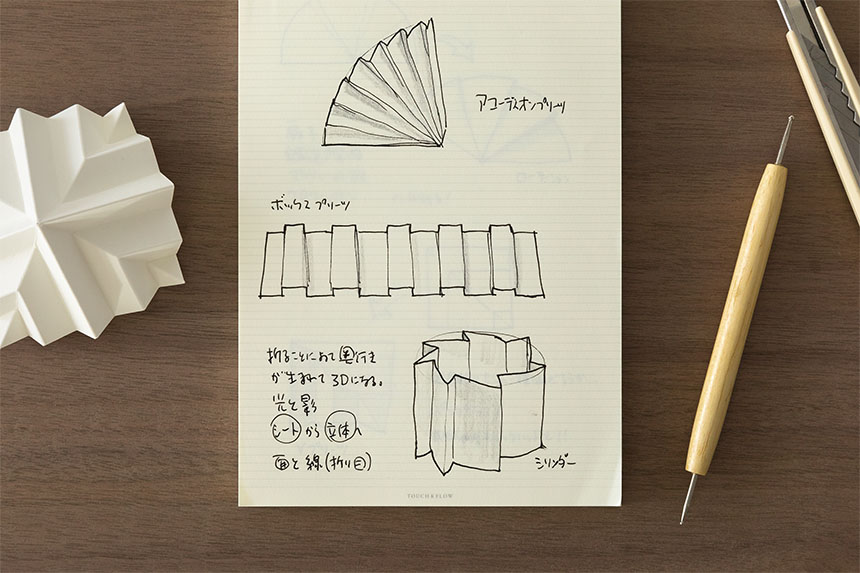 アコーディオンプリーツ
ボックスプリーツ
折ることによって奥行き
が生まれて3Dになる。
光と影
シートから立体へ
面と線(折り目)
シリンダー
TOUCH & FLOW